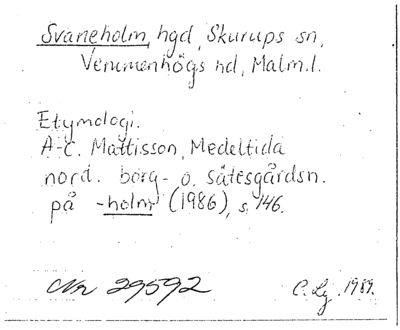 Svaneholm, hgd, Skurups sn,
Vemmenhögs hd, Malm.l.
Etymologi.
A-C. Mattisson, Medeltida
nord. borg- o. sätesgårdsn.
på -holm (1986), s. 146.
Nr 29592
C. Lg. 1989.